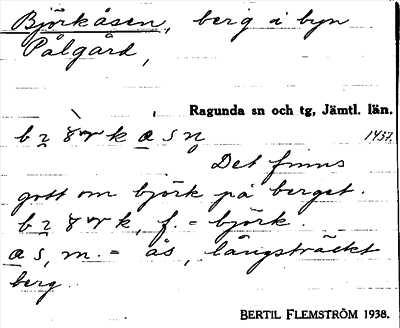 Björkåsen, berg i byn
Pålgård,
Ragunda sn och tg, Jämtl. län.
1437.
Det finns
gott om björk på berget.
f. = björk.
m. = ås, långsträckt
berg.
BERTIL FLEMSTRÖM 1938.